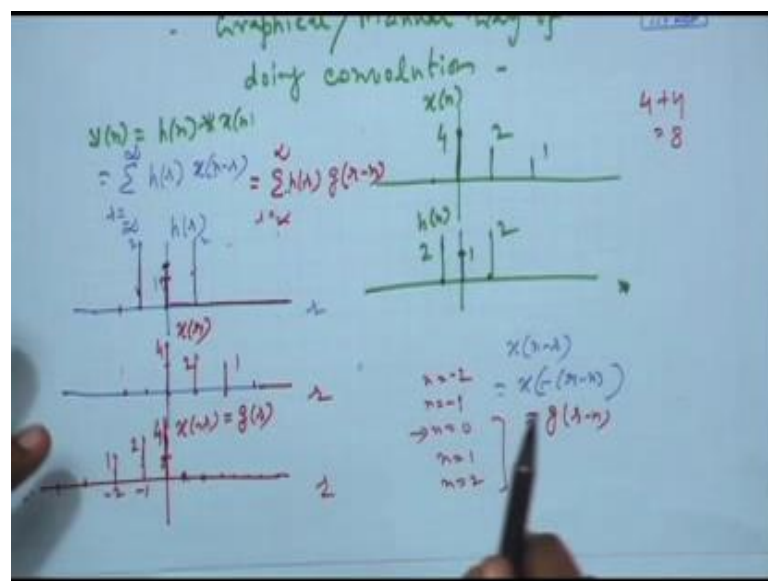 Graphical/Manual Way of
doing convolution -
y(n) = h(n) * x(n)
= Σ h(r) x(n-r) = Σ h(r) g(r-n)
x(n)
4 2 1
4+4
= 8
h(r)
2 1 2
h(n)
2 1 2
x(r)
4 2 1
r
x(-r) = g(r)
1 2 4
-2 -1
r
x(n-r)
= x(-(r-n))
= g(r-n)
n=-2
n=-1
→ n=0
n=1
n=2